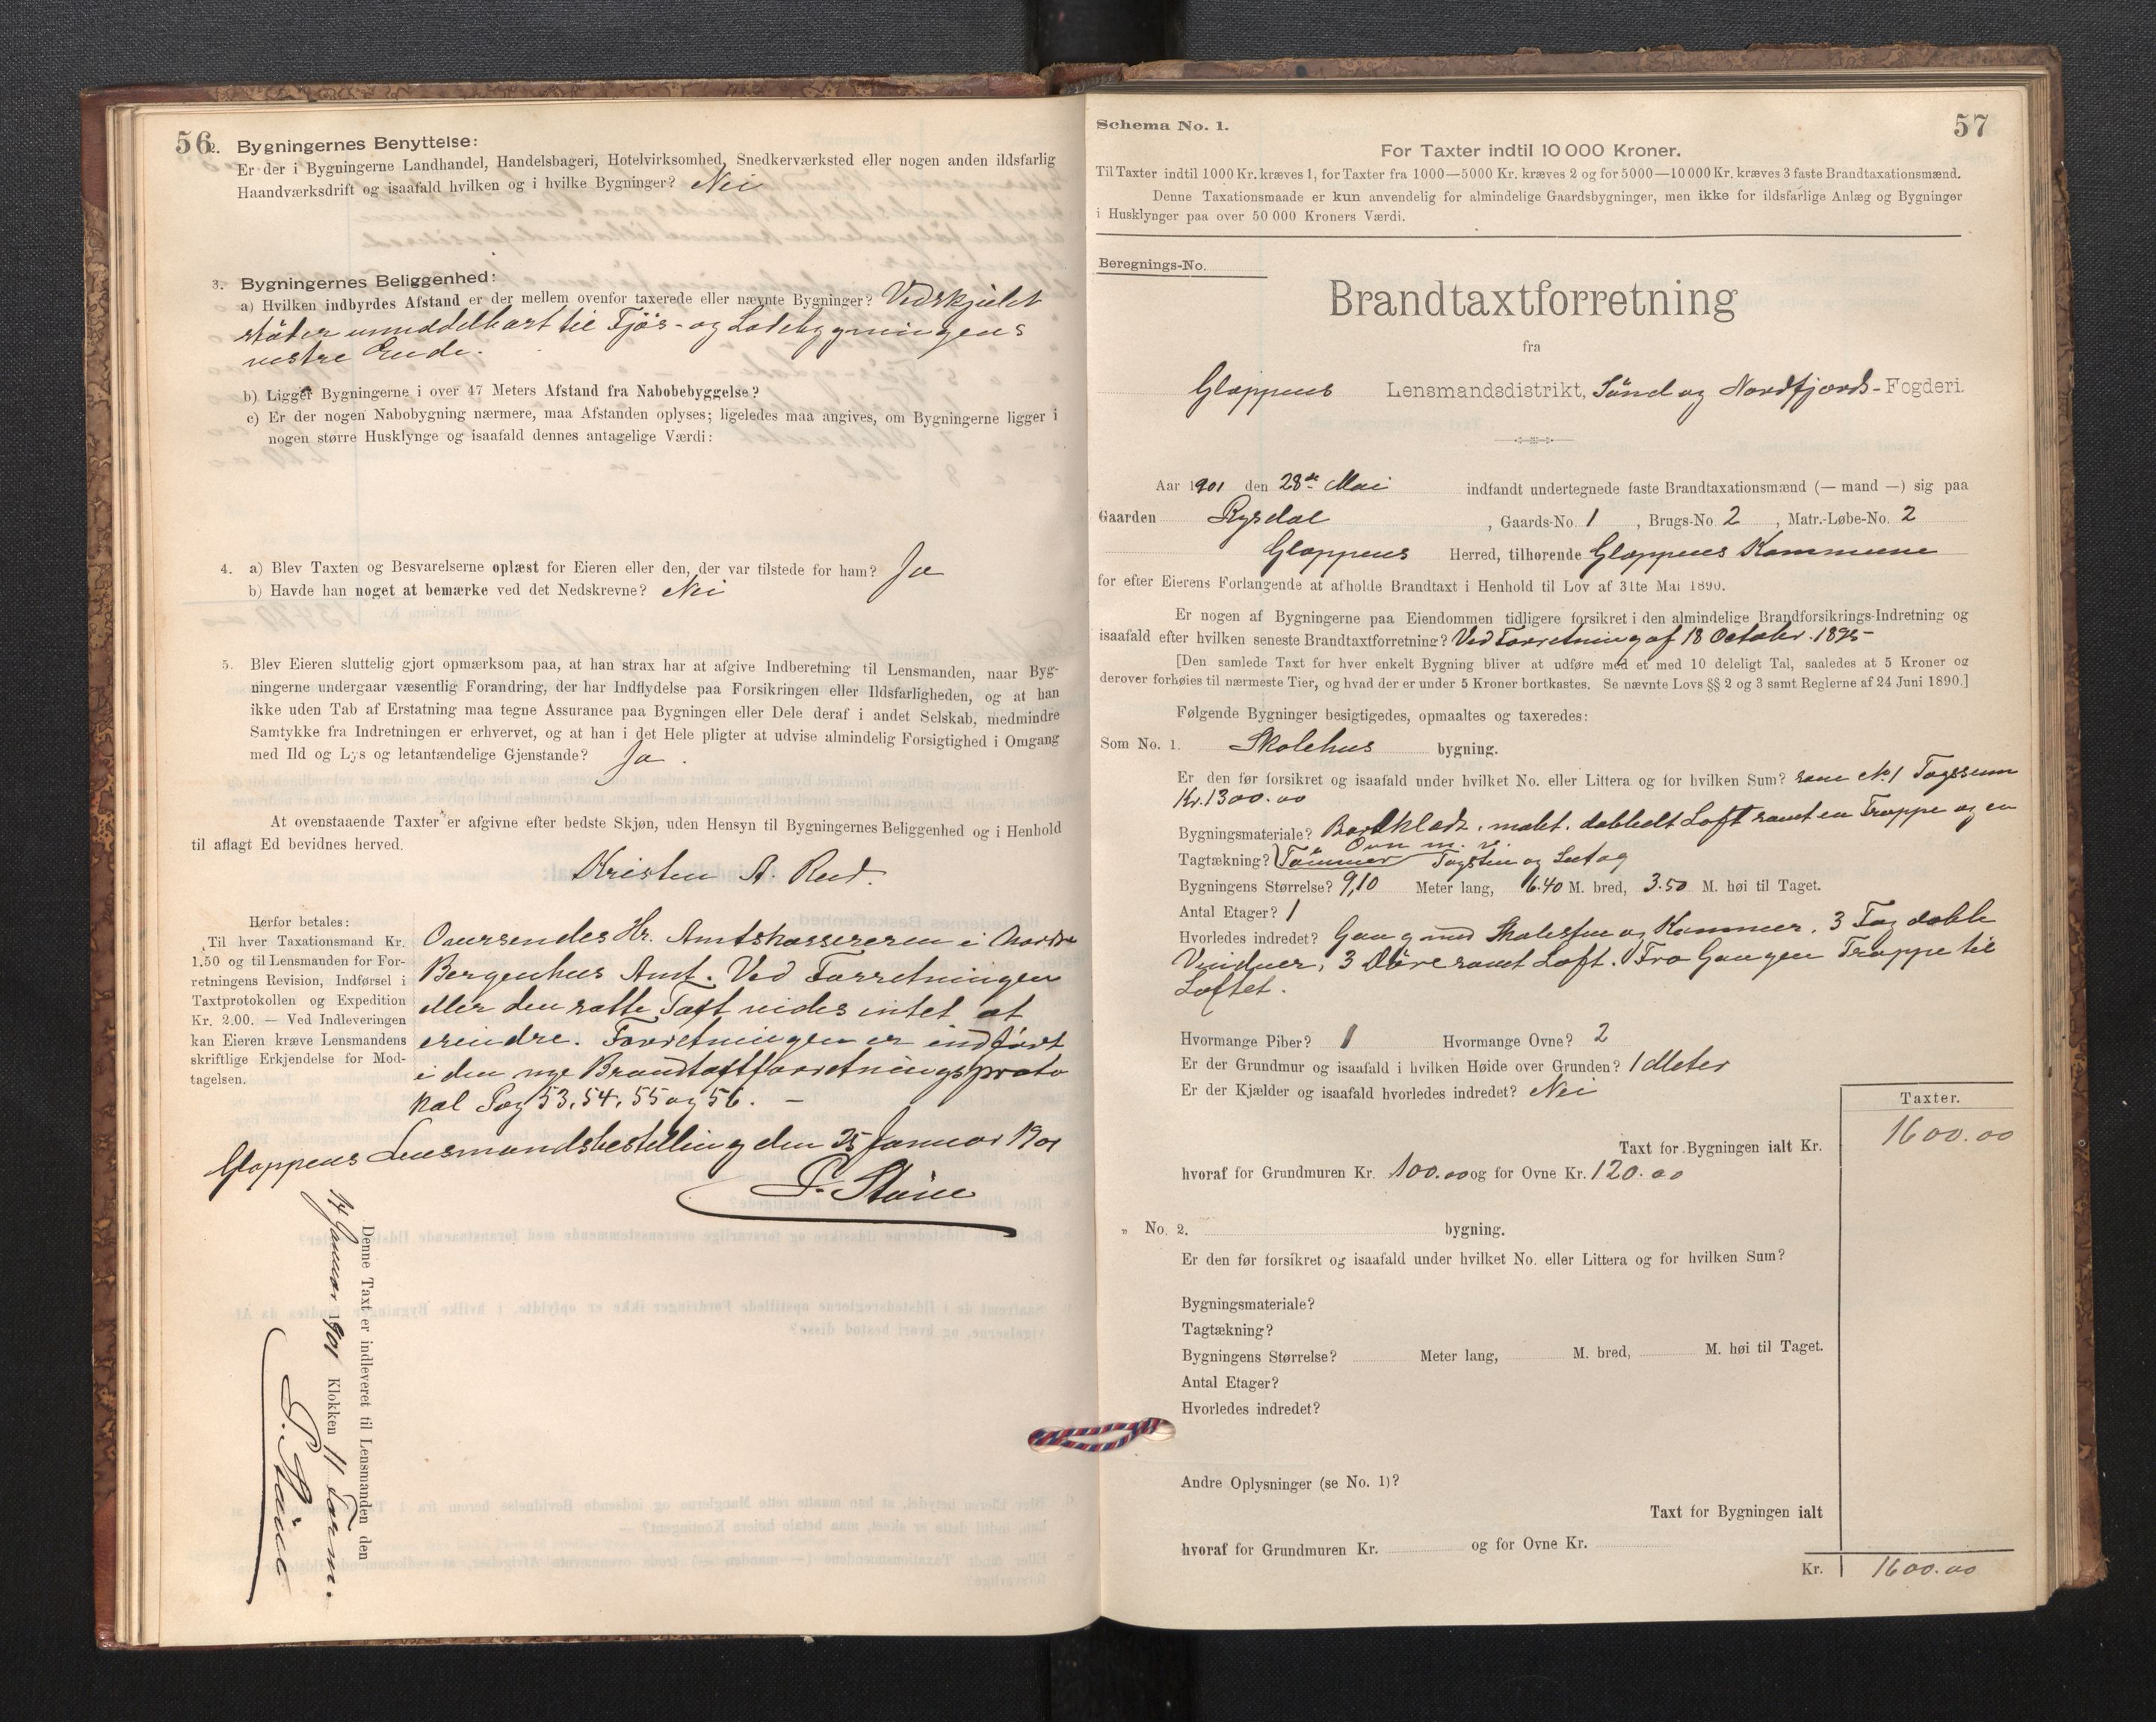 56
2. Bygningernes Benyttelse:
Er der i Bygningerne Landhandel, Handelsbageri, Hotelvirksomhed, Snedkerværksted eller nogen anden ildsfarlig
Haandværksdrift og isaafald hvilken og i hvilke Bygninger? Nei
3. Bygningernes Beliggenhed:
a) Hvilken indbyrdes Afstand er der mellem ovenfor taxerede eller nævnte Bygninger? Vedskjulet
støder umiddelbart til Fjøs- og Ladebygningens
vestre Ende.
b) Ligger Bygningerne i over 47 Meters Afstand fra Nabobebyggelse?
c) Er der nogen Nabobygning nærmere, maa Afstanden oplyses; ligeledes maa angives, om Bygningerne ligger i
nogen større Husklynge og isaafald dennes antagelige Værdi:
4. a) Blev Taxten og Besvarelserne oplæst for Eieren eller den, der var tilstede for ham? Ja
b) Havde han noget at bemærke ved det Nedskrevne? Nei
5. Blev Eieren sluttelig gjort opmærksom paa, at han strax har at afgive Indberetning til Lensmanden, naar Byg-
ningerne undergaar væsentlig Forandring, der har Indflydelse paa Forsikringen eller Ildsfarligheden, og at han
ikke uden Tab af Erstatning maa tegne Assurance paa Bygningen eller Dele deraf i andet Selskab, medmindre
Samtykke fra Indretningen er erhvervet, og at han i det Hele pligter at udvise almindelig Forsigtighed i Omgang
med Ild og Lys og letantændelige Gjenstande? Ja.
At ovenstaaende Taxter er afgivne efter bedste Skjøn, uden Hensyn til Bygningernes Beliggenhed og i Henhold
til aflagt Ed bevidnes herved.
Kristen A. Reed.
Herfor betales:
Til hver Taxationsmand Kr.
1.50 og til Lensmanden for For-
retningens Revision, Indførsel i
Taxtprotokollen og Expedition
Kr. 2.00. — Ved Indleveringen
kan Eieren kræve Lensmandens
skriftlige Erkjendelse for Mod-
tagelsen.
Oversendes Hr. Amtskassereren i Nordre
Bergenhus Amt. Ved Forretningen
eller den satte Taxt vides intet at
erindre. Forretningen er indført
i den nye Brandtaxtforretningsproto
kol Pag 53, 54, 55 og 56. —
Gloppens Lensmandsbestilling den 25 Januar 1901
Denne Taxt er indleveret til Lensmanden den
Januar 1901 Klokken 11 Form.
57
Schema No. 1.
For Taxter indtil 10 000 Kroner.
Til Taxter indtil 1000 Kr. kræves 1, for Taxter fra 1000—5000 Kr. kræves 2 og for 5000—10 000 Kr. kræves 3 faste Brandtaxationsmænd.
Denne Taxationsmaade er kun anvendelig for almindelige Gaardsbygninger, men ikke for ildsfarlige Anlæg og Bygninger
i Husklynger paa over 50 000 Kroners Værdi.
Beregnings-No.
Brandtaxtforretning
fra
Gloppens Lensmandsdistrikt, Sønd og Nordfjords-Fogderi.
Aar 1901 den 28de Mai indfandt undertegnede faste Brandtaxationsmænd (— mand —) sig paa
Gaarden Rysdal, Gaards-No. 1, Brugs-No. 2, Matr.-Løbe-No. 2
Gloppens Herred, tilhørende Gloppens Kommune
for efter Eierens Forlangende at afholde Brandtaxt i Henhold til Lov af 31te Mai 1890.
Er nogen af Bygningerne paa Eiendommen tidligere forsikret i den almindelige Brandforsikrings-Indretning og
isaafald efter hvilken seneste Brandtaxtforretning? Ved Forretning af 18 October 1895
[Den samlede Taxt for hver enkelt Bygning bliver at udføre med et med 10 deleligt Tal, saaledes at 5 Kroner og
derover forhøies til nærmeste Tier, og hvad der er under 5 Kroner bortkastes. Se nævnte Lovs §§ 2 og 3 samt Reglerne af 24 Juni 1890.]
Følgende Bygninger besigtigedes, opmaaltes og taxeredes:
Som No. 1. Skolehus bygning.
Er den før forsikret og isaafald under hvilket No. eller Littera og for hvilken Sum? som No 1
Kr. 1300.00
Bygningsmateriale? Bordklædt, malt. dobbelt Loft samt en Trappe og en
Ovn m. v.
Tagtækning? (Tømmer Tagsten og
Bygningens Størrelse? 9,10 Meter lang, 6.40 M. bred, 3.50 M. høi til Taget.
Antal Etager? 1
Hvorledes indredet? Gang med Skolestue og Kammer, 3 Fag doble
Vinduer, 3 Døre samt Loft. Fra Gangen Trappe til
Loftet.
Hvormange Piber? 1 Hvormange Ovne? 2
Er der Grundmur og isaafald i hvilken Høide over Grunden? 1 Meter
Er der Kjælder og isaafald hvorledes indredet? Nei
Taxter.
Taxt for Bygningen ialt Kr. 1600.00
hvoraf for Grundmuren Kr. 100.00 og for Ovne Kr. 120.00
„ No. 2. bygning.
Er den før forsikret og isaafald under hvilket No. eller Littera og for hvilken Sum?
Bygningsmateriale?
Tagtækning?
Bygningens Størrelse? Meter lang, M. bred, M. høi til Taget.
Antal Etager?
Hvorledes indredet?
Andre Oplysninger (se No. 1)?
Taxt for Bygningen ialt
hvoraf for Grundmuren Kr. og for Ovne Kr.
Kr. 1600.00